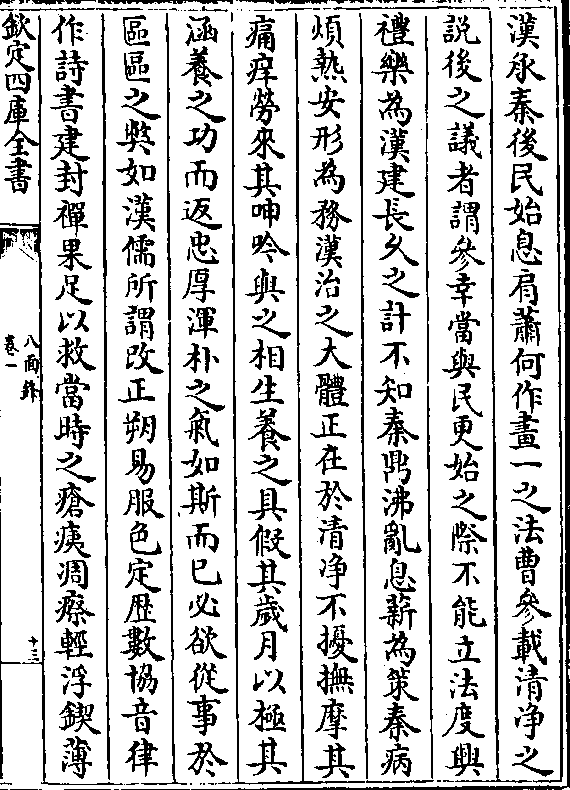 漢承秦後民始息肩蕭何作畫一之法曹參載清净之
説後之議者謂參幸當與民更始之際不能立法度興
禮樂為漢建長久之計不知秦鼎沸亂息薪為策秦病
煩熱安形為務漢治之大體正在於清净不擾撫摩其
痛痒勞來其呻吟與之相生養之具假其歲月以極其
涵養之功而返忠厚渾朴之氣如斯而已必欲從事於
區區之弊如漢儒所謂改正朔易服色定歴數協音律
作詩書建封禪果足以救當時之瘡痍凋瘵輕浮鍥薄
欽定四庫全書
八面鋒
卷一
十三